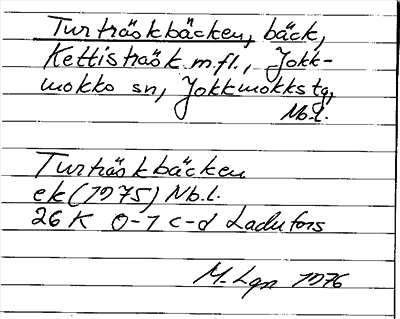 Turträskbäcken, bäck,
Kettisträsk m.fl., Jokk-
mokks sn, Jokkmokks tg,
Nb.l.
Turträskbäcken
ek (1975) Nb.l.
26 K 0-1 c-d Ladufors
M. Lgn 1976